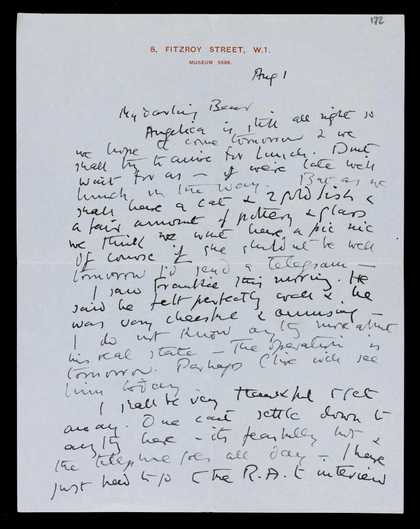 172
8, FITZROY STREET, W.1.
MUSEUM 5386.
Aug 1
My darling Bear
Angelica is still all right so
we hope to come tomorrow & we
shall try to arrive for lunch. Dont
wait for us – if we're late we'll
lunch on the way. But as we
shall have a cat & 2 goldfish &
a fair amount of pottery & glass
we think we wont have a picnic
Of course if she shouldnt be well
tomorrow I'd send a telegram –
I saw Frankie this morning. He
said he felt perfectly well & he
was very cheerful & amusing –
I do not know anything more about
his real state – The operation is
tomorrow. Perhaps Clive will see
him today
I shall be very thankful to get
away. One cant settle down to
anything here – its fearfully hot &
the telephone goes all day – I have
just had to go to the R.A. to interview